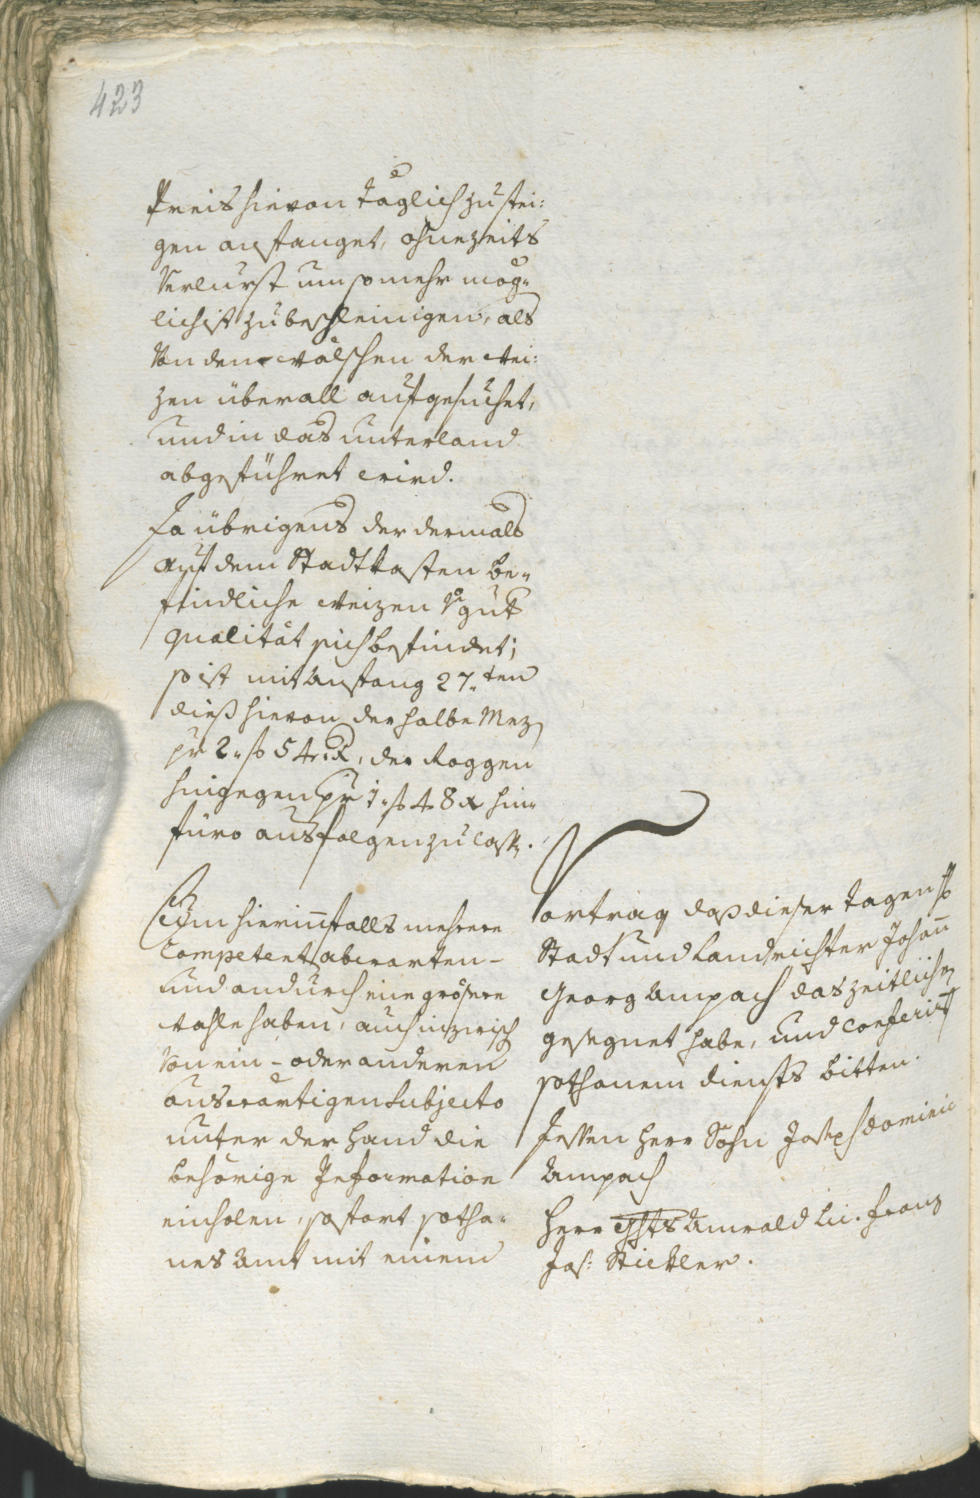 423
Preis hievon täglich zu stei:
gen anfanget, ohne zeits
Verlurst um so mehr mög-
lichist zubeschleinigen, als
Von den wälschen der wei:
zen überall aufgesuchet,
und in das unterland
abgeführet wird.
Da übrigens der dermals
auf dem Stadtkasten be-
findliche weizen guter
qualität sich befindet;
so ist mit Anfang 27.ten
dieß hievon der halbe Mez
pr 2. f 54. x, der Roggen
hingegen pr 1. f 48 x hin-
füro ausfolgen zu lassen.
Um hierinfalls mehrere
Competenten abwarten-
und andurch eine grössere
wahle haben, auch inzwischen
von ein- oder anderen
auswärtigen Subjecto
unter der hand die
behörige Information
einholen, sofort sotha-
nes Amt mit einem
Vortrag daß dieser Tagen
Stadt und Landrichter Johann
Georg Ampach das zeitliche
gesegnet habe, und
sothanem diensts bitten.
Dessen Herr Sohn Joseph Dominic
Ampach
Herr Anwald Lic. Franz
Jos: Stickler.